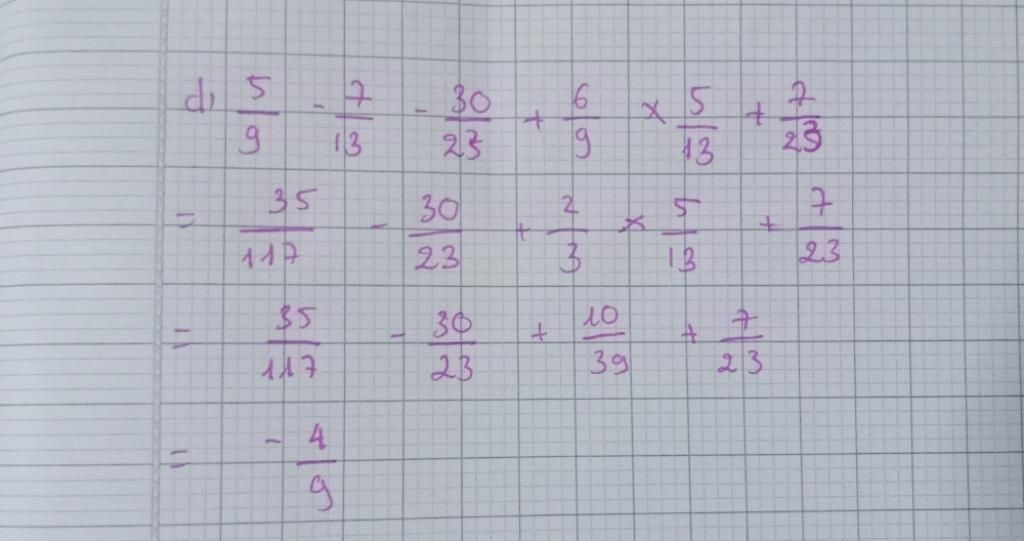 d) 5/9 - 7/13 - 30/23 + 6/9 × 5/13 + 7/23
= 35/117 - 30/23 + 2/3 × 5/13 + 7/23
= 35/117 - 30/23 + 10/39 + 7/23
= - 4/9